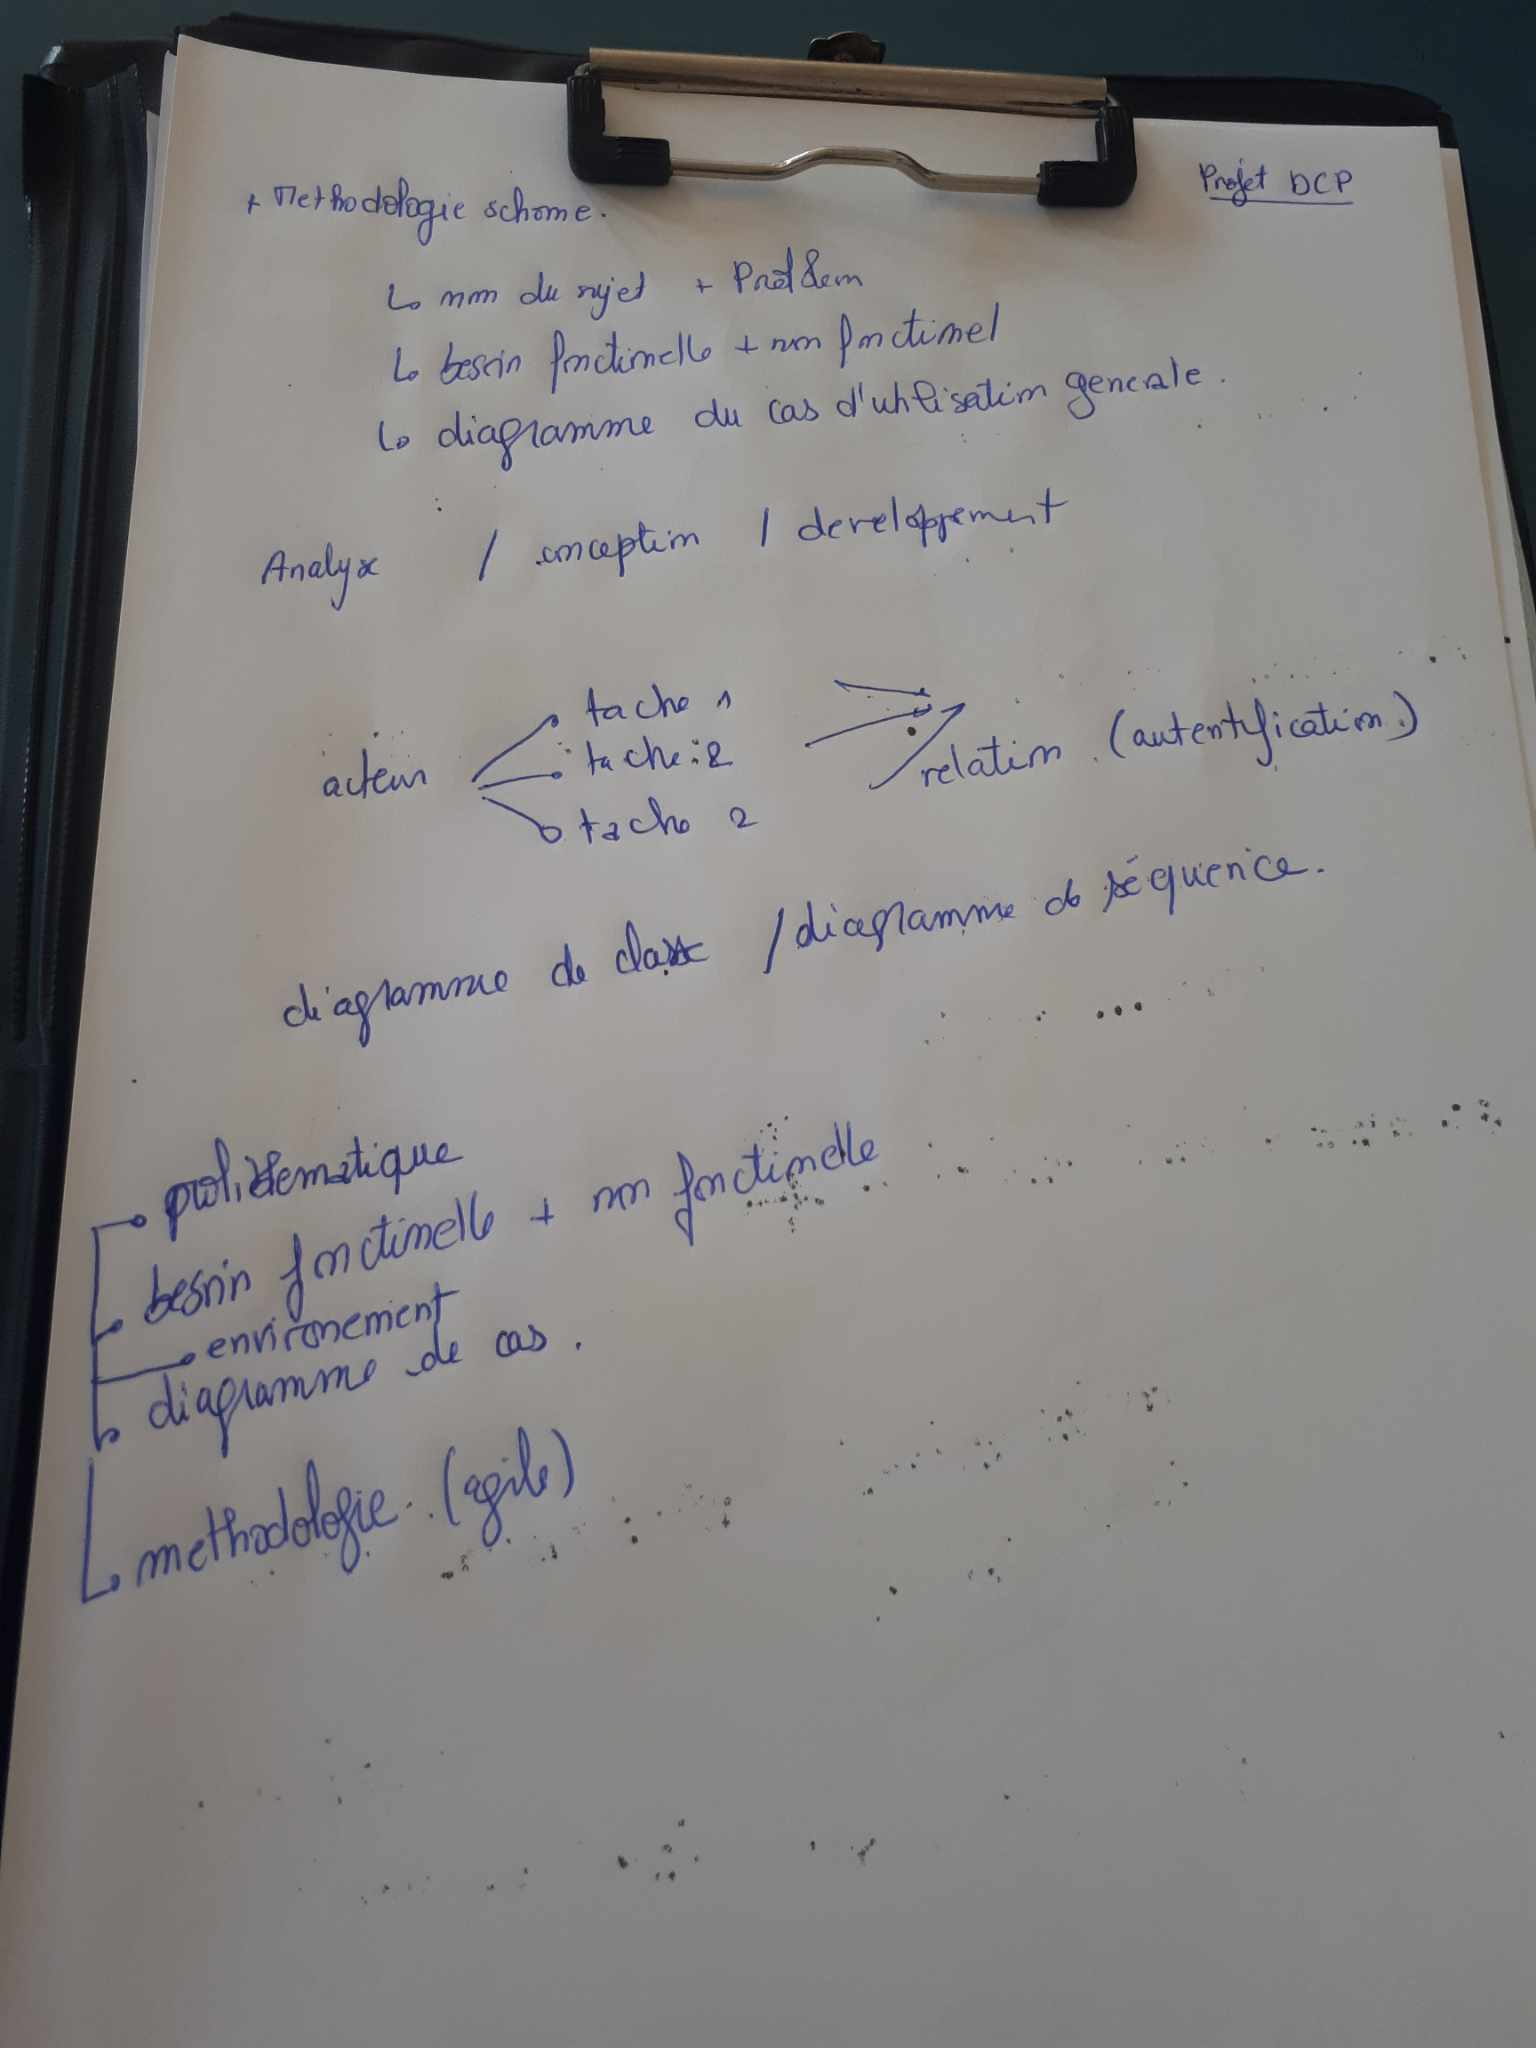 Projet DCP
+ Methodologie schome.
↳ nom du sujet + Problem
↳ besoin fonctionnelle + non fonctionnel
↳ diagramme du cas d'utilisation generale.
Analyse / conception / developpement
acteur
tache 1
tache : 2
tache 2
relation (autentification.)
diagramme de classe / diagramme de séquence.
problématique
besoin fonctionnelle + non fonctionnelle
environement
diagramme de cas.
methodologie. (agile)